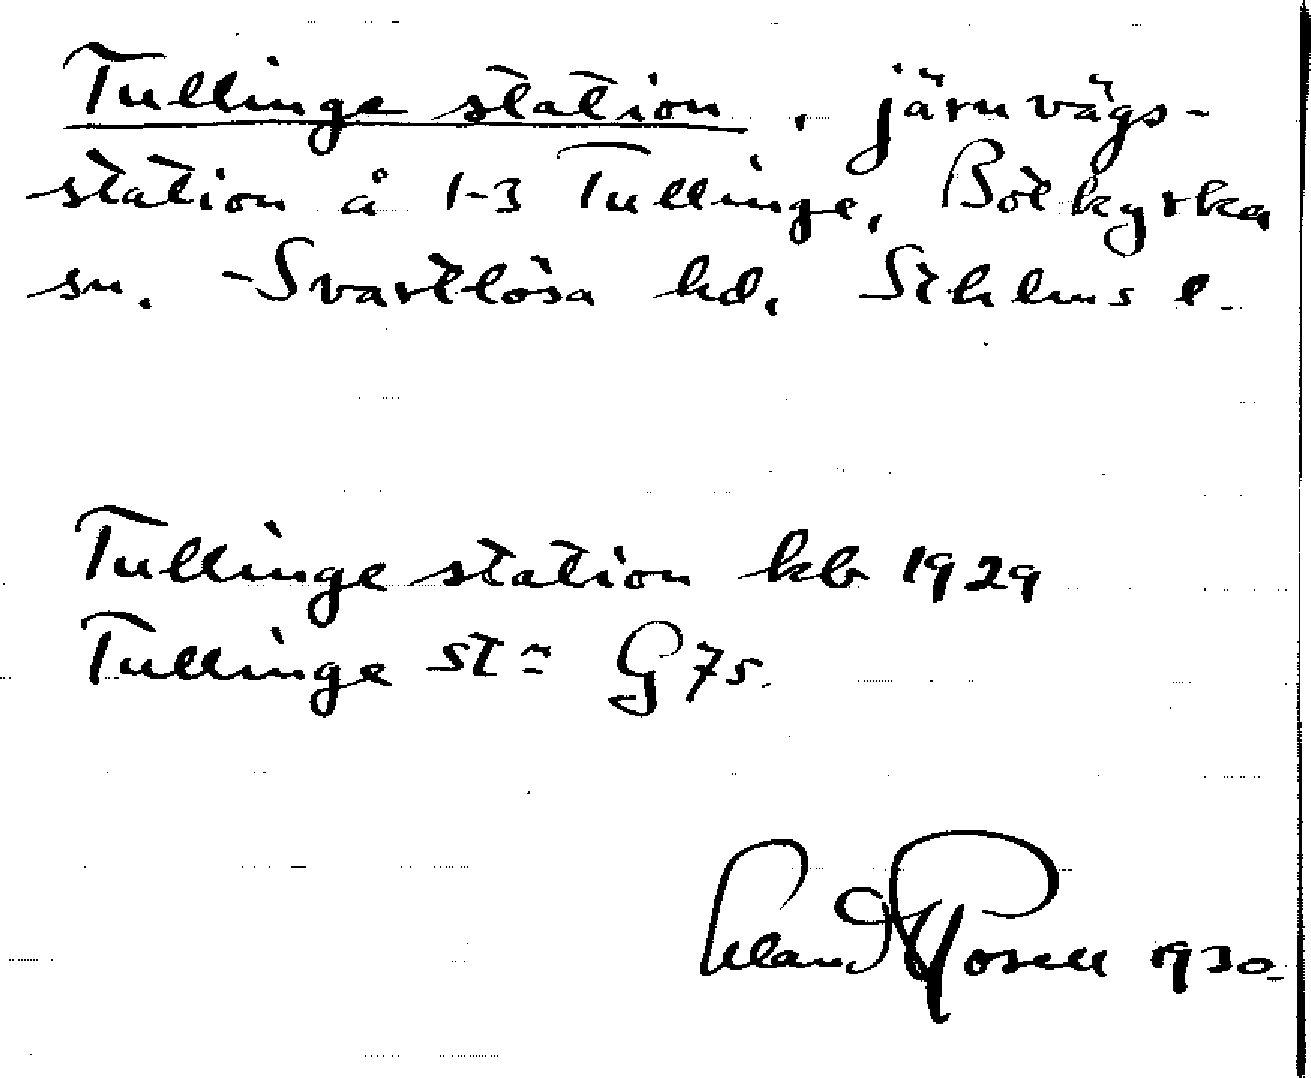 Tullinge station, järnvägs-
station å 1-3 Tullinge, Botkyrka
sn. Svartlösa hd, Sthlms l.
Tullinge station kb 1929
Tullinge st= G 75.
Erland Rosell 1930.